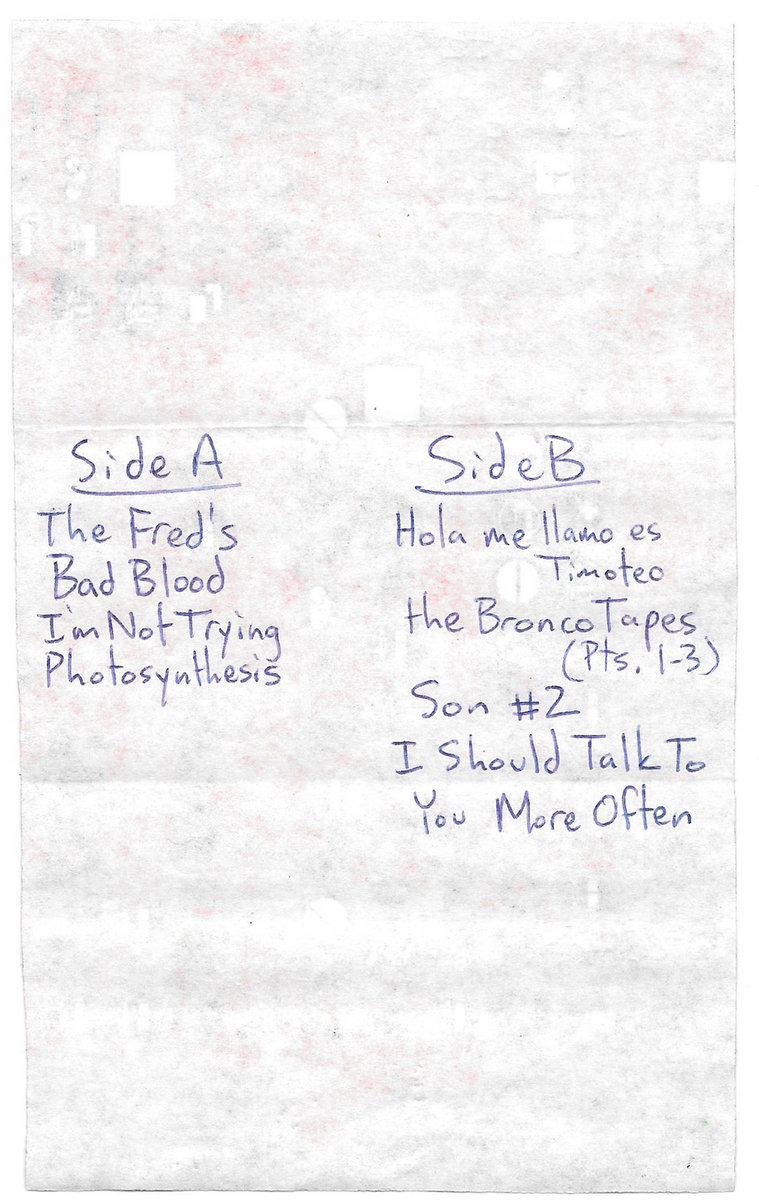 Side A
The Fred's
Bad Blood
I'm Not Trying
Photosynthesis
Side B
Hola me llamo es
Timoteo
the Bronco Tapes
(Pts. 1-3)
Son #2
I Should Talk To
You More Often